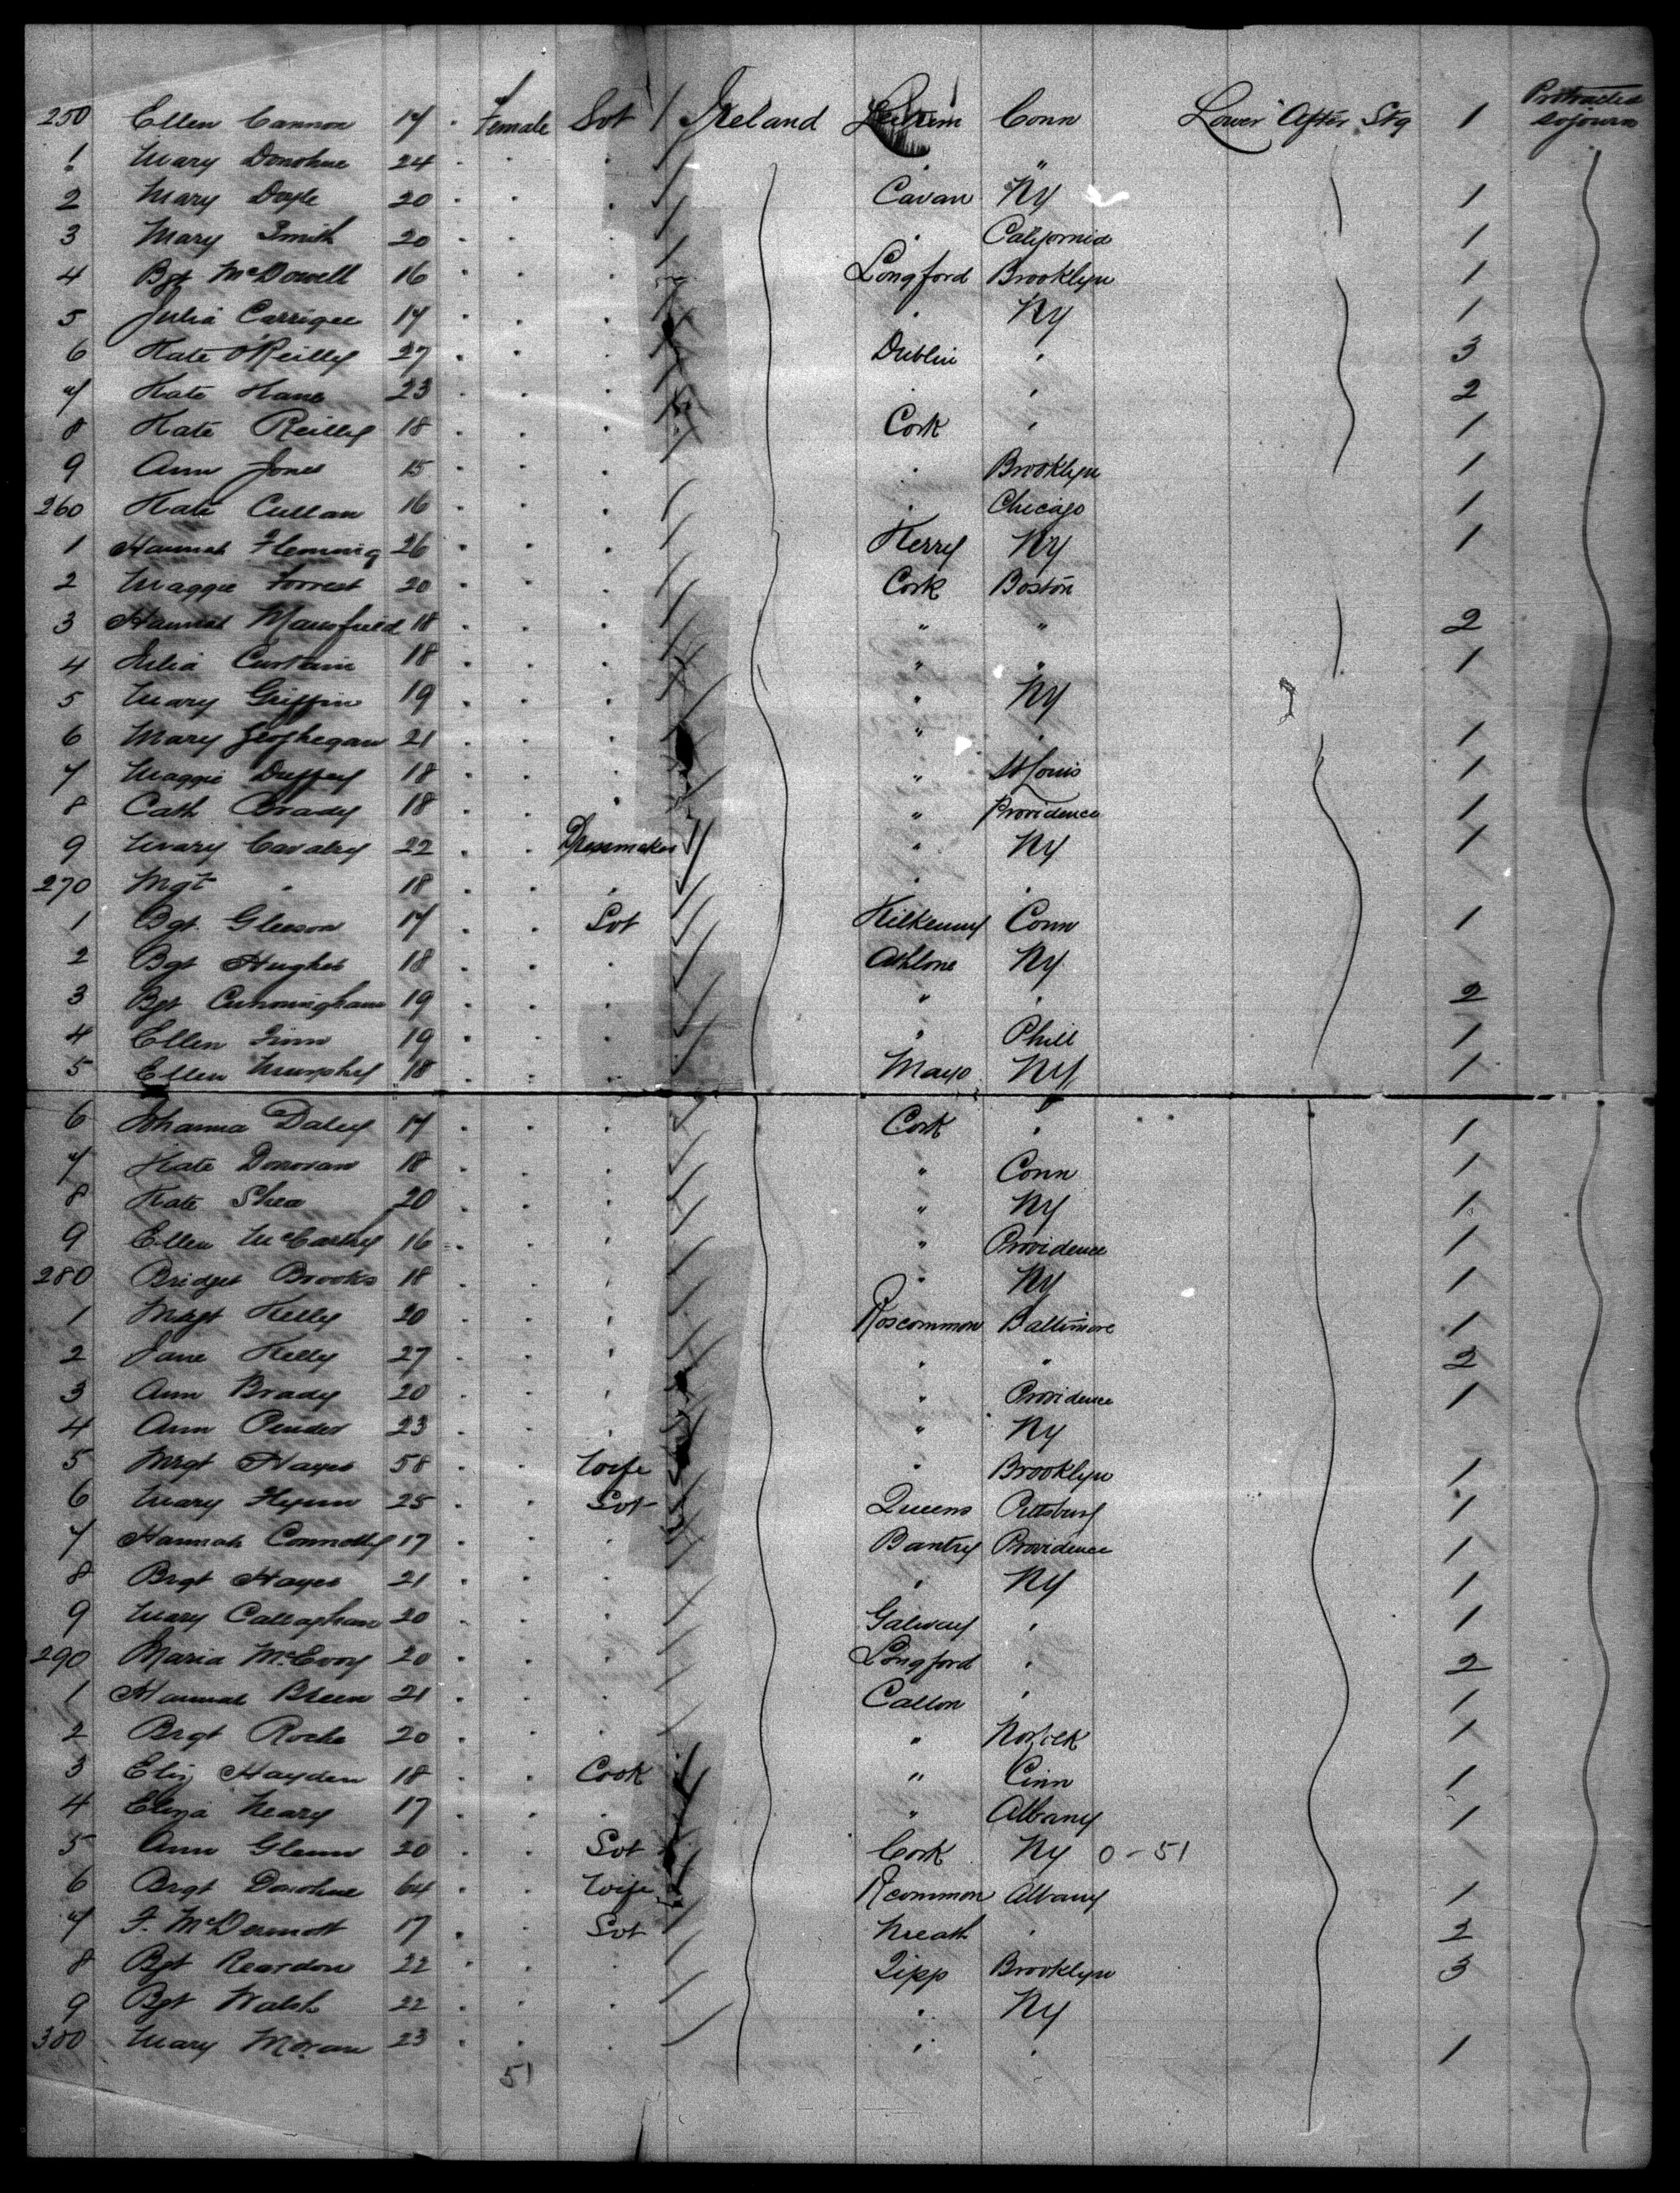 250 Ellen Cannon 17 . Female Svt / Ireland Leitrim Conn Lower After Stg 1 Protracted sojourn
1 Mary Donohue 24 . . . / . "
2 Mary Doyle 20 . . . / Cavan Ny 1
3 Mary Smith 20 . . . / . California 1
4 Bgt McDowell 16 . . . / Longford Brooklyn 1
5 Julia Carrigee 17 . . . / . Ny 1
6 Kate O'Reilly 27 . . . / Dublin . 3
7 Kate Kane 23 . . . / . . 2
8 Kate Reilly 18 . . . / Cork . 1
9 Ann Jones 15 . . . / . Brooklyn 1
260 Kate Cullan 16 . . . / . Chicago 1
1 Hannah Fleming 26 . . . / Kerry Ny 1
2 Maggie Forrest 20 . . . / Cork Boston
3 Hannah Mansfield 18 . . . / " " 2
4 Julia Curtain 18 . . . / " " 1
5 Mary Griffin 19 . . . / " Ny
6 Mary Geoghegan 21 . . . / " . 1
7 Maggie Duffey 18 . . . / " St Louis 1
8 Cath Brady 18 . . . / " Providence 1
9 Mary Cavalry 22 . . Dressmaker / " Ny 1
270 Mgt " 18 . . . / . .
1 Bgt Gleeson 17 . . Svt / Kilkenny Conn 1
2 Bgt Hughes 18 . . . / Athlone Ny
3 Bgt Cunningham 19 . . . / " . 2
4 Ellen Finn 19 . . . / " Phill 1
5 Ellen Murphy 18 . . . / Mayo Ny 1
6 Johanna Daley 17 . . . / Cork . 1
7 Kate Donovan 18 . . . / " Conn 1
8 Kate Shea 20 . . . / " Ny 1
9 Ellen McCarthy 16 . . . / " Providence 1
280 Bridget Brooks 18 . . . / " Ny 1
1 Mrgt Kelly 20 . . . / Roscommon Baltimore 1
2 Jane Kelly 27 . . . / . " 2
3 Ann Brady 20 . . . / " Providence 1
4 Ann Pender 23 . . . / " Ny
5 Mrgt Hayes 58 . . Wife / " Brooklyn 1
6 Mary Flynn 25 . . Svt / Queens Pittsburg 1
7 Hannah Connolly 17 . . . / Bantry Providence 1
8 Brgt Hayes 21 . . . / . Ny 1
9 Mary Callaghan 20 . . . / Galway . 1
290 Maria McEvoy 20 . . . / Longford . 2
1 Hannah Breen 21 . . . / Callon . 1
2 Brgt Roche 20 . . . / " Norfolk 1
3 Eliz Hayden 18 . . Cook / " Cinn 1
4 Eliza Neary 17 . . . / " Albany 1
5 Ann Glenn 20 . . Svt / Cork Ny 0-51
6 Brgt Donohue 64 . . Wife / Rcommon Albany 1
7 F. McDermott 17 . . Svt / Meath . 2
8 Bgt Reardon 22 . . . / Tipp Brooklyn 3
9 Bgt Walsh 22 . . . / . Ny
300 Mary Moran 23 . . . / . . 1
51